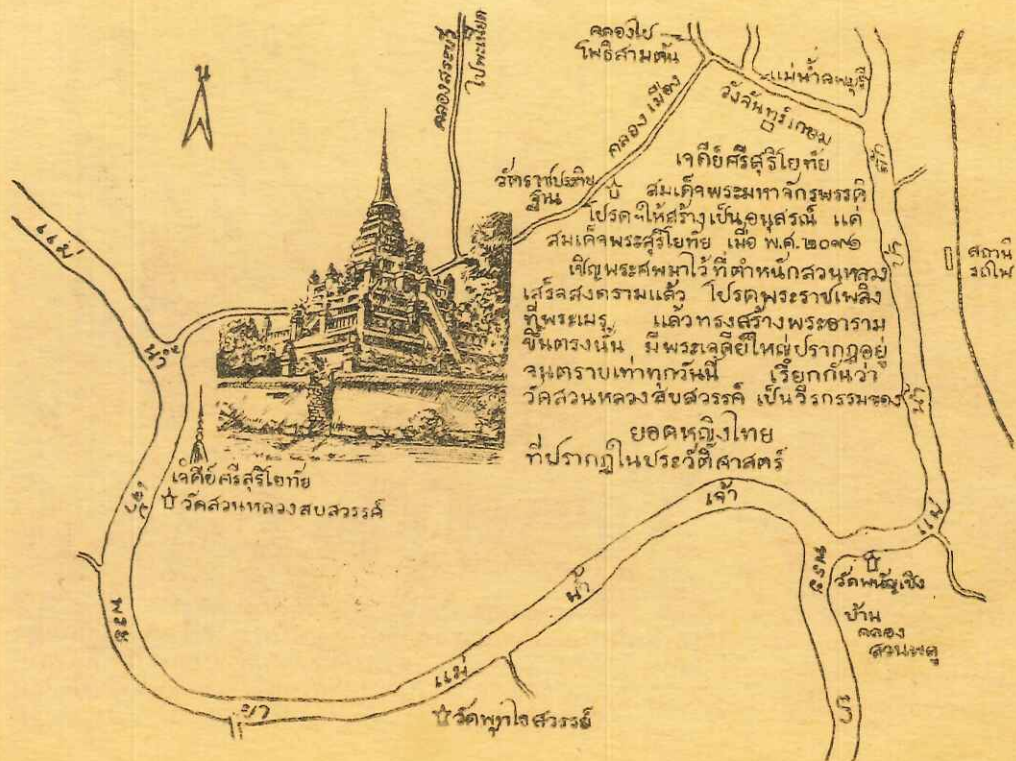 น
คลองสระบัว
ไปพะเนียด
คลองไป
โพธิสามต้น
แม่น้ำลพบุรี
วังจันทร์เกษม
คลองเมือง
วัดราชประดิษ
ฐาน
เจดีย์ศรีสุริโยทัย
สมเด็จพระมหาจักรพรรดิ
โปรดฯให้สร้างเป็นอนุสรณ์ แด่
สมเด็จพระสุริโยทัย เมื่อ พ.ศ.๒๐๙๑
เชิญพระศพมาไว้ที่ตำหนักสวนหลวง
เสร็จสงครามแล้ว โปรดพระราชเพลิง
ที่พระเมรุ แล้วทรงสร้างพระอาราม
ขึ้นตรงนั้น มีพระเจดีย์ใหญ่ปรากฏอยู่
จนตราบเท่าทุกวันนี้ เรียกกันว่า
วัดสวนหลวงสบสวรรค์ เป็นวีรกรรมของ
ยอดหญิงไทย
ที่ปรากฏในประวัติศาสตร์
สถานี
รถไฟ
แม่
น้ำ
เจ้า
พระ
ยา
เจดีย์ศรีสุริโยทัย
วัดสวนหลวงสบสวรรค์
แม่
น้ำ
เจ้า
พระ
ยา
แม่
น้ำ
ป่า
สัก
วัดพนัญเชิง
บ้าน
คลอง
สวนพลู
วัดพุทไธสวรรย์